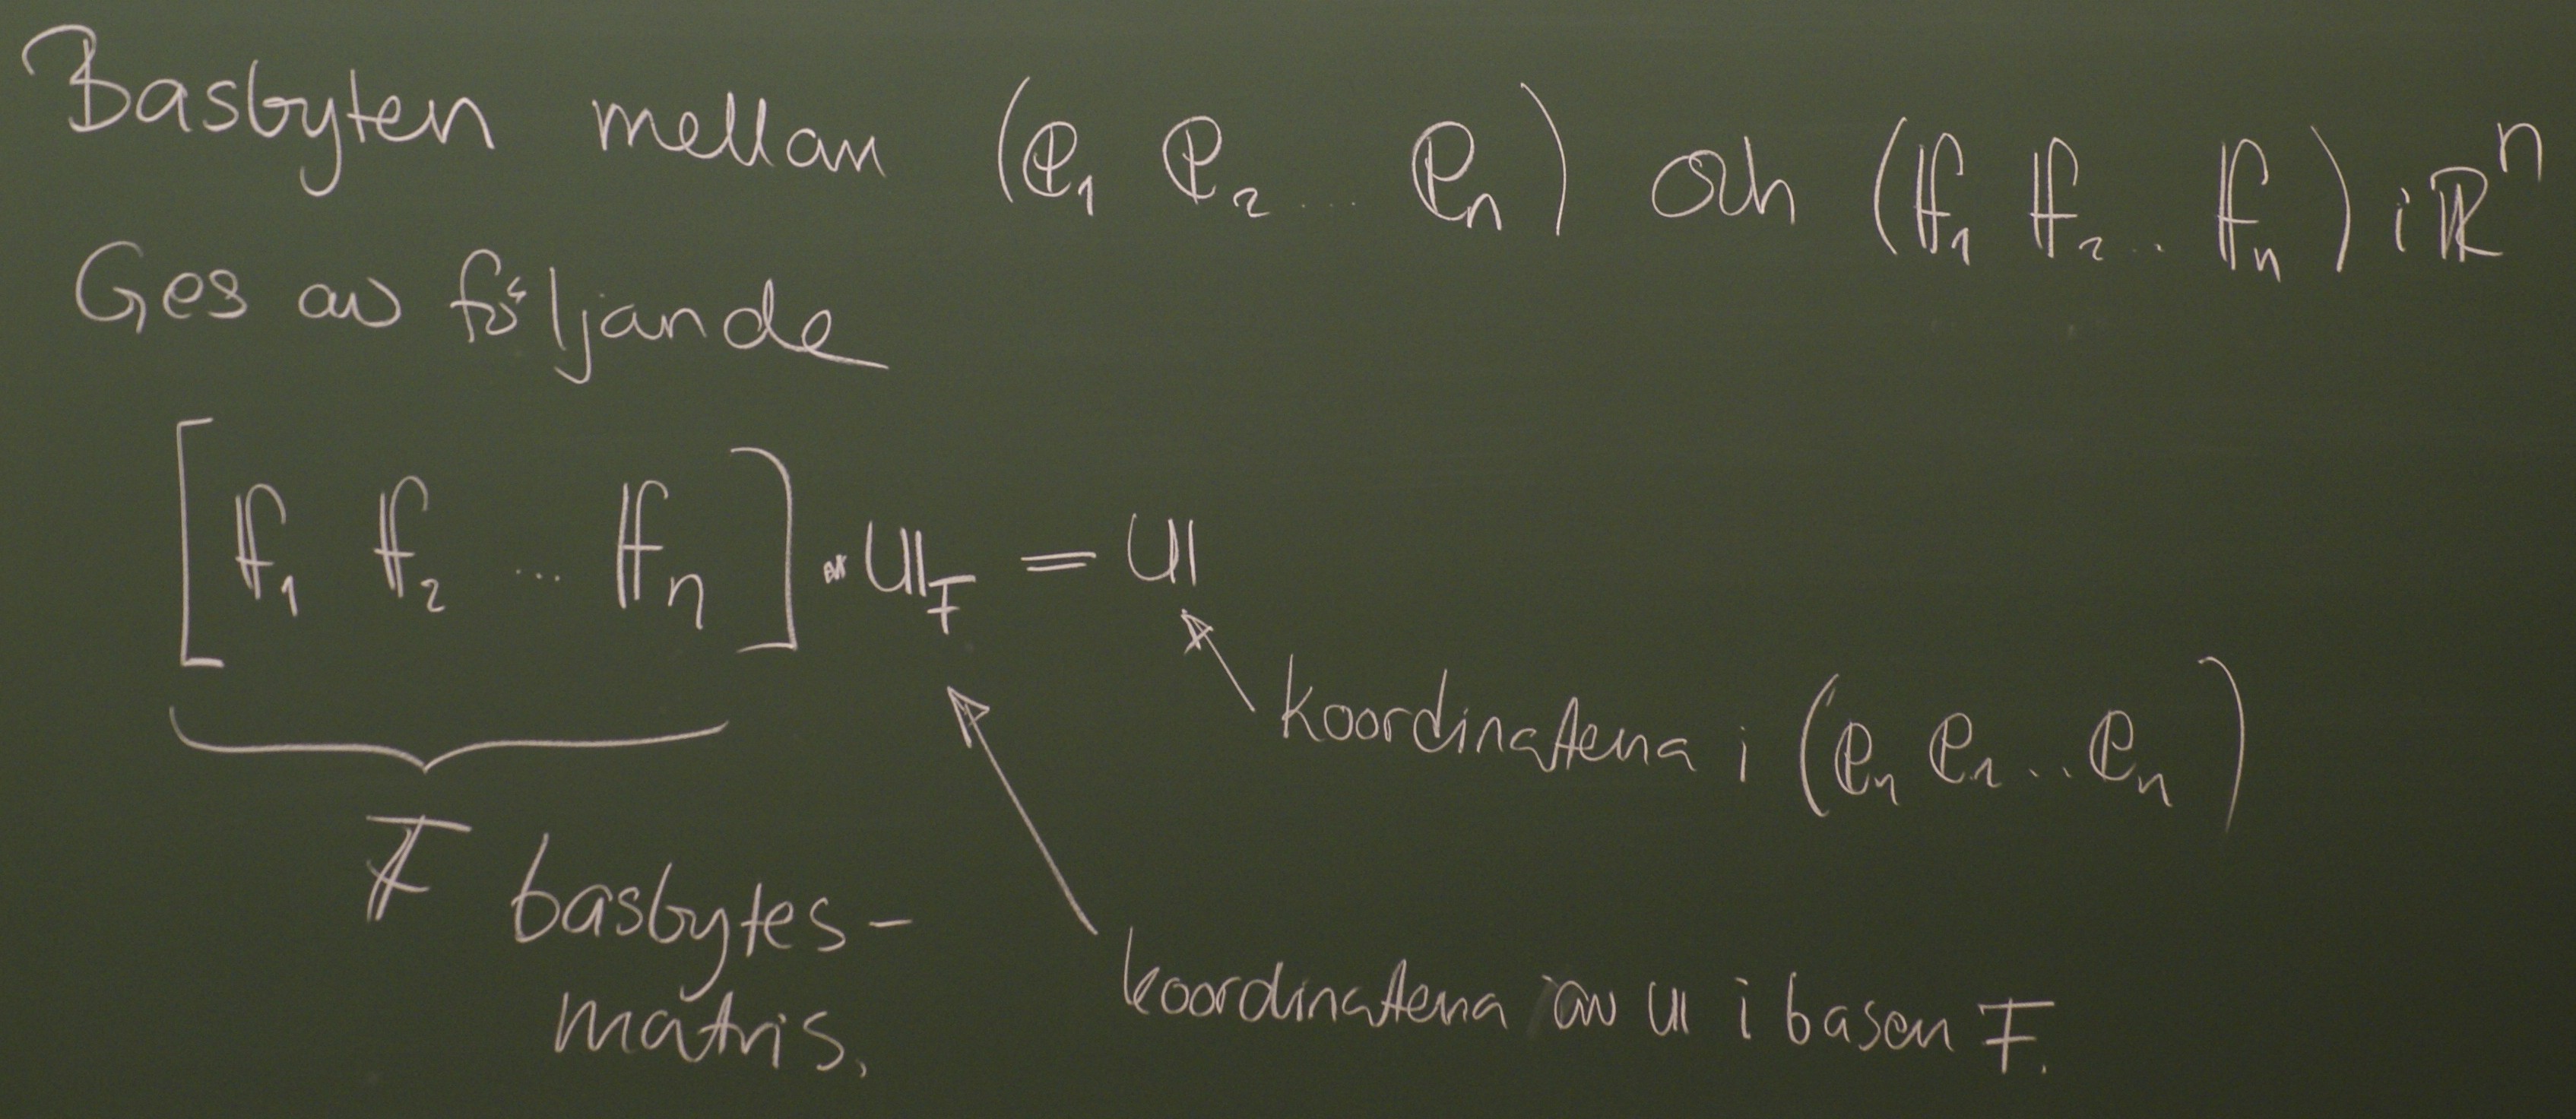 Basbyten mellan (𝕖₁ 𝕖₂ ... 𝕖ₙ) och (𝕗₁ 𝕗₂ .. 𝕗ₙ) i ℝⁿ
Ges av följande
[𝕗₁ 𝕗₂ ... 𝕗ₙ] · 𝕦_F = 𝕦
koordinaterna i (𝕖₁ 𝕖₂ ... 𝕖ₙ)
F basbytes-
matris.
koordinaterna av 𝕦 i basen F.